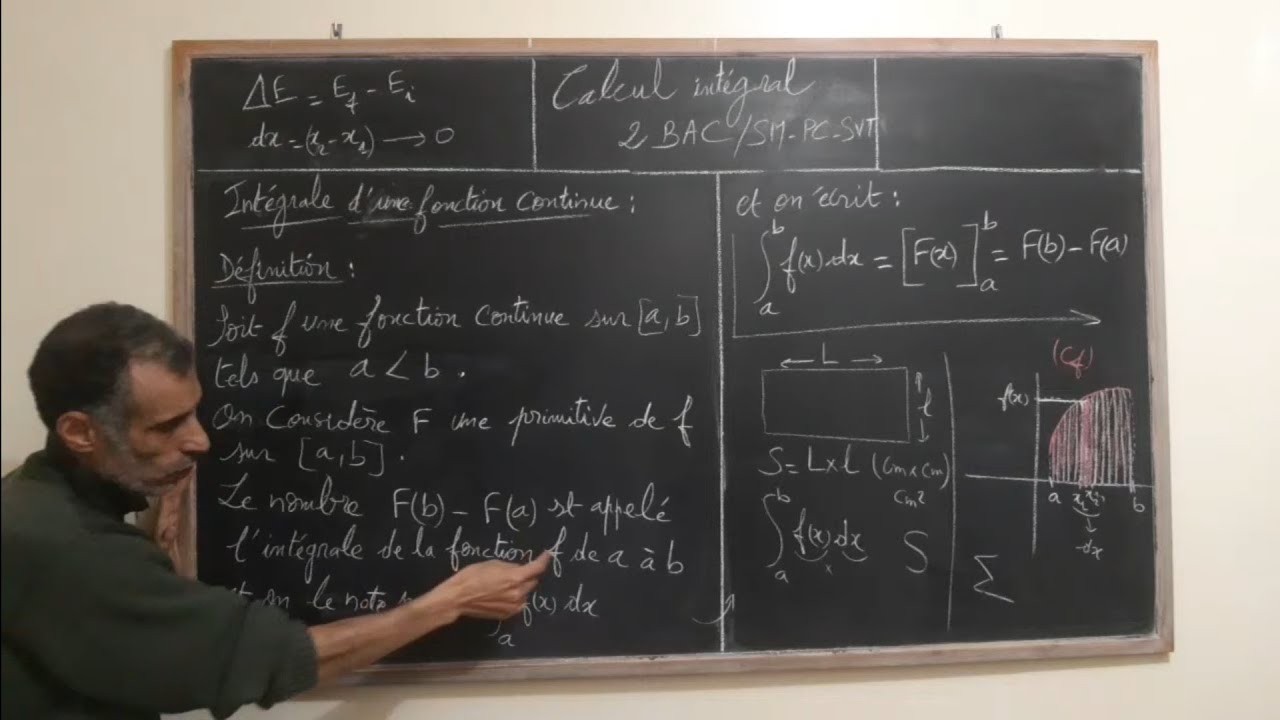 ΔE = E_f - E_i
dx = (x_2 - x_1) → 0
Calcul intégral
2 BAC/SM-PC-SVT
Intégrale d'une fonction continue :
Définition :
Soit f une fonction continue sur [a,b]
tels que a < b .
On Considère F une primitive de f
sur [a,b] .
Le nombre F(b) - F(a) st appelé
l'intégrale de la fonction f de a à b
on le note f(x) dx
a
et on écrit :
∫_a^b f(x).dx = [F(x)]_a^b = F(b) - F(a)
L
l
S = L x l (Cm x Cm)
Cm²
∫_a^b f(x).dx
x
S
(Cf)
f(x)
a x_1 x_2 b
dx
Σ